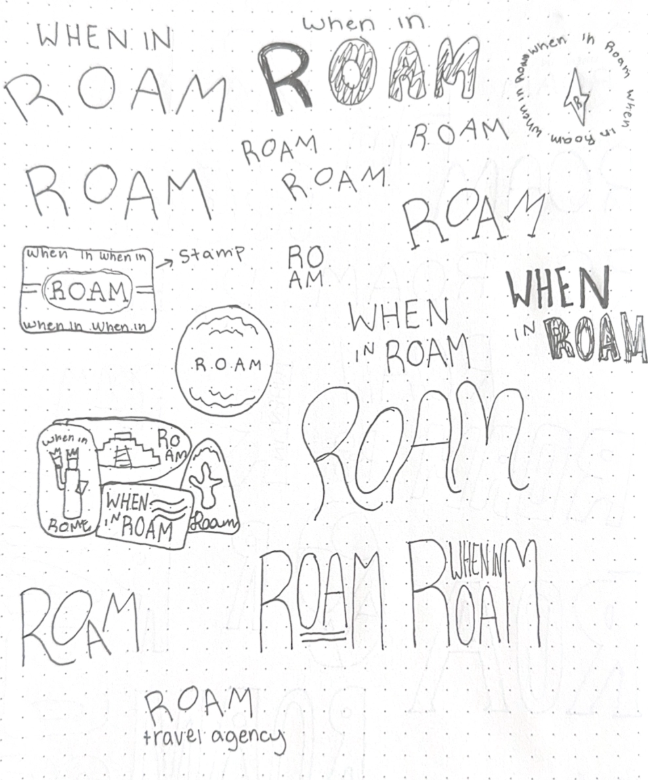 WHEN IN
ROAM
When in
ROAM
When in Roam when in Roam when in Roam
R
ROAM
ROAM
ROAM
ROAM
ROAM
When in When in
ROAM
When in When in
→ Stamp
RO
AM
WHEN
IN ROAM
WHEN
IN ROAM
R.O.AM
ROAM
When in
ROME
RO
AM
WHEN
IN ROAM
Roam
ROAM
ROAM
ROAM
WHEN IN
ROAM
travel agency